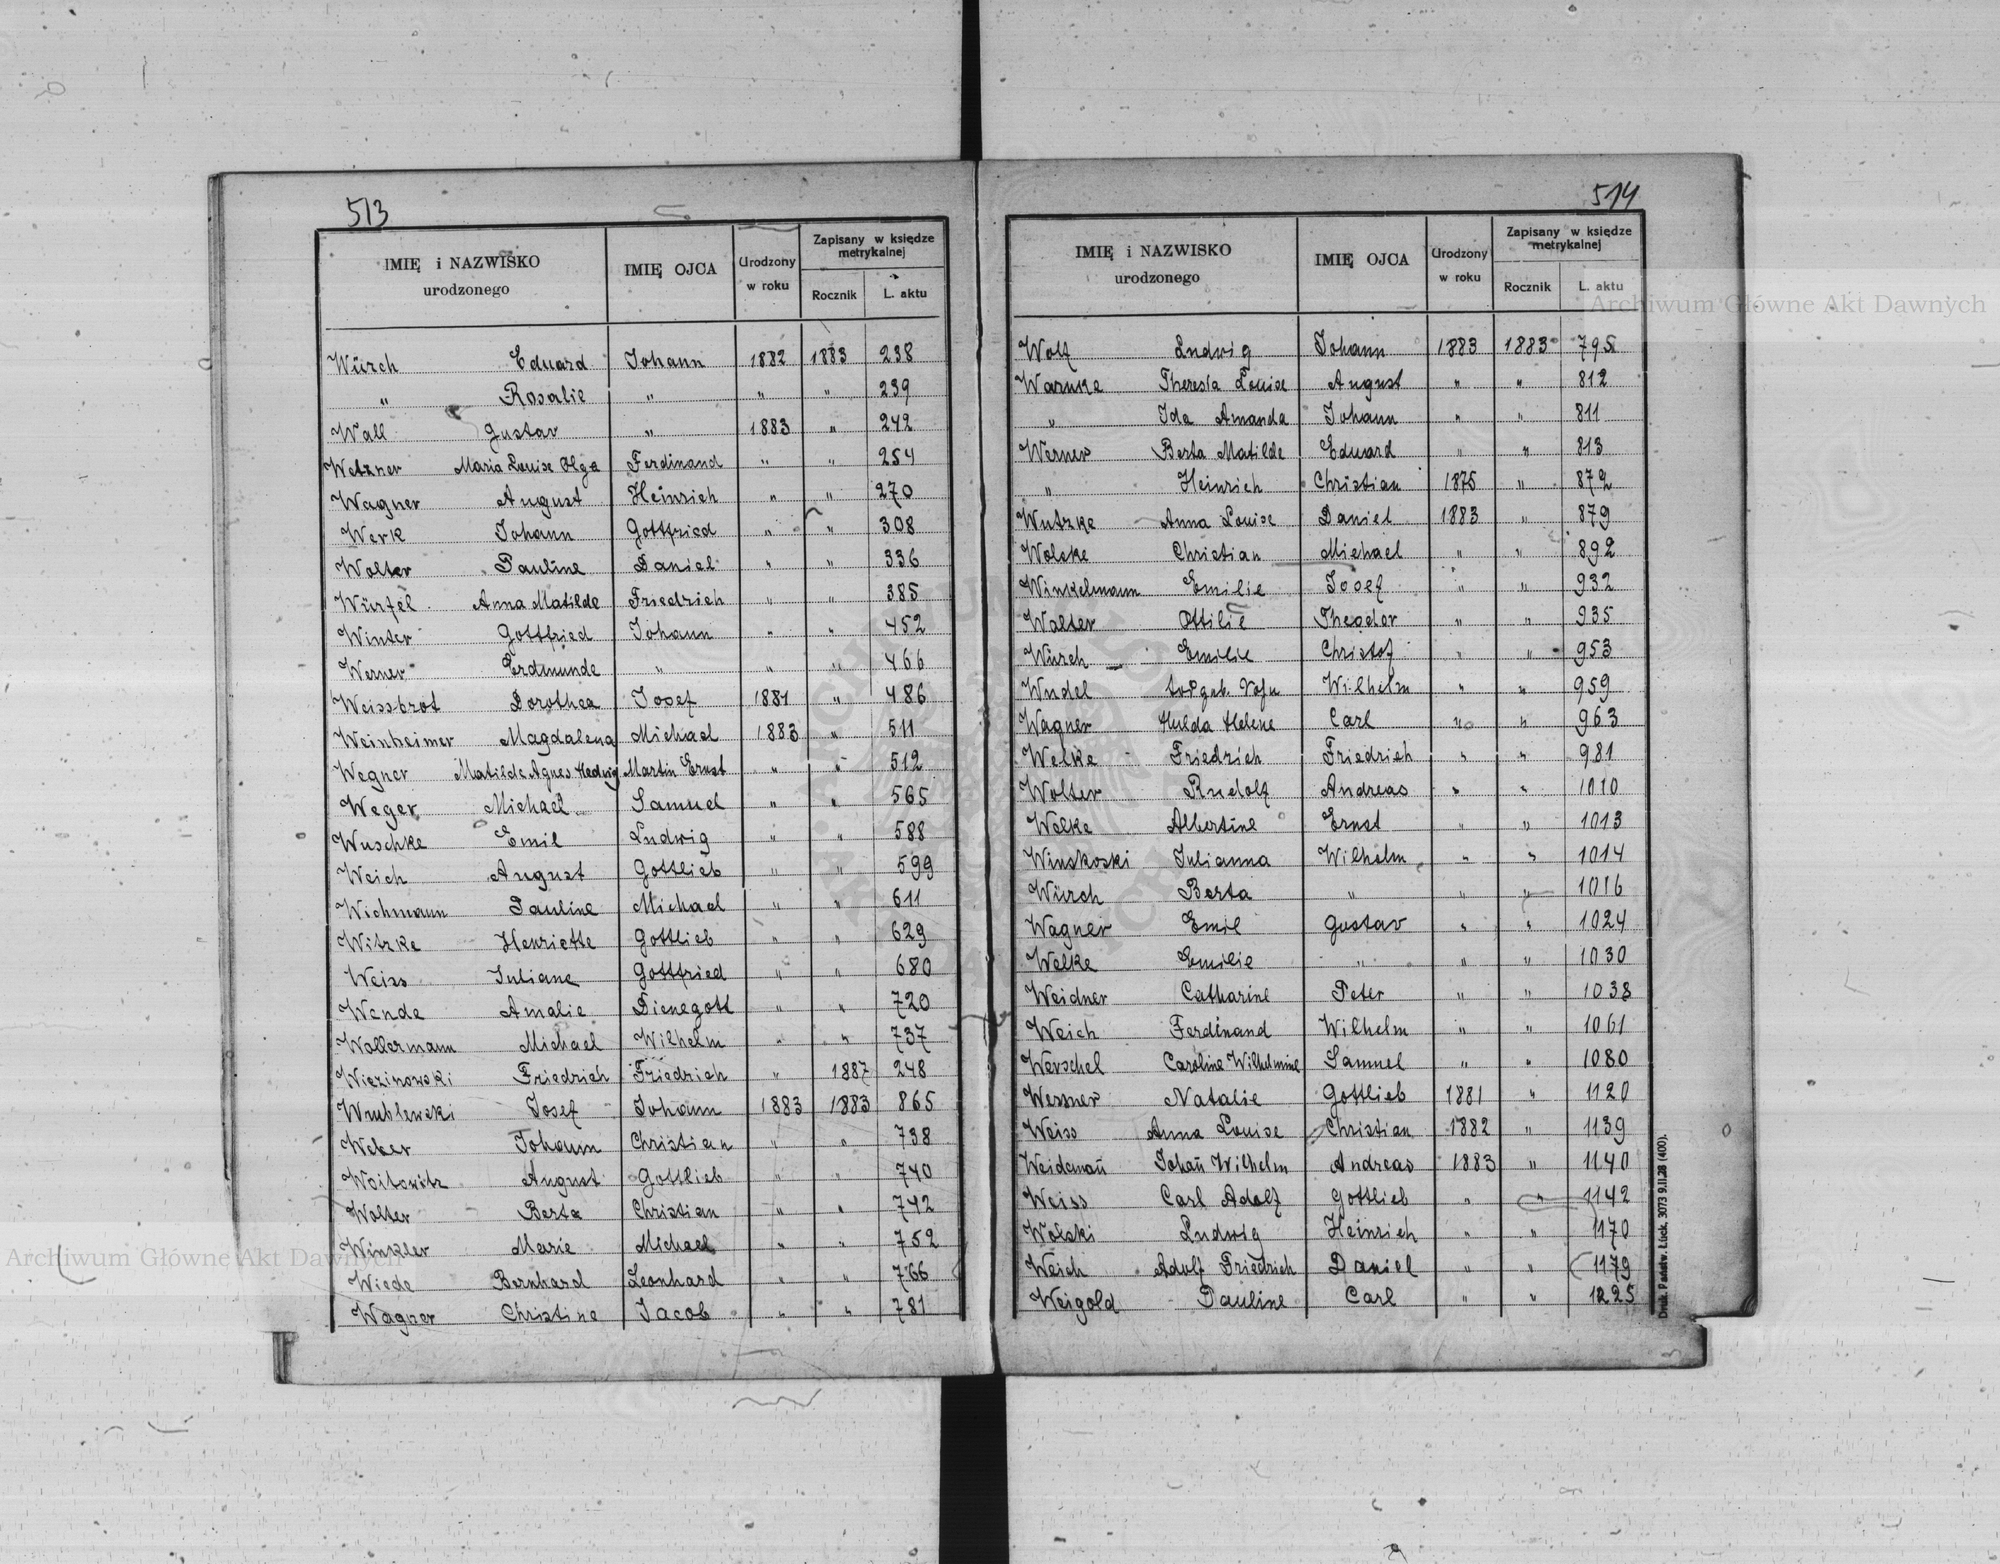 513
IMIĘ i NAZWISKO urodzonego IMIĘ OJCA Urodzony w roku Zapisany w księdze metrykalnej Rocznik L. aktu
Würch Eduard Johann 1882 1883 238
" Rosalie " " " 239
Wall Gustav " 1883 " 242
Wetzner Maria Louise Olga Ferdinand " " 254
Wagner August Heinrich " " 270
Werk Johann Gottfried " " 308
Wolter Pauline Daniel " " 336
Würfel Anna Matilde Friedrich " " 385
Winter Gottfried Johann " " 452
Werner Erdmunde " " " 466
Weissbrot Dorothea Josef 1881 " 486
Weinheimer Magdalena Michael 1883 " 511
Wegner Matilde Agnes Hedwig Martin Ernst " " 512
Weger Michael Samuel " " 565
Wuschke Emil Ludwig " " 588
Weich August Gottlieb " " 599
Wichmann Pauline Michael " " 611
Witzke Henriette Gottlieb " " 629
Weiss Juliane Gottfried " " 680
Wende Amalie Dienegott " " 720
Wollermann Michael Wilhelm " " 737
Wiezinowski Friedrich Friedrich " 1887 248
Wrublewski Josef Johann 1883 1883 865
Weber Johann Christian " " 738
Woitowitz August Gottlieb " " 740
Wolter Berta Christian " " 742
Winkler Marie Michael " " 752
Wiede Bernhard Leonhard " " 766
Wagner Christine Jacob " " 781
514
IMIĘ i NAZWISKO urodzonego IMIĘ OJCA Urodzony w roku Zapisany w księdze metrykalnej Rocznik L. aktu
Wolf Ludwig Johann 1883 1883 795
Warnke Theresla Louise August " " 812
" Ida Amanda Johann " " 811
Werner Berta Matilde Eduard " " 813
" Heinrich Christian 1875 " 872
Wutzke Anna Louise Daniel 1883 " 879
Wolske Christian Michael " " 892
Winkelmann Emilie Josef " " 932
Walter Ottilie Theodor " " 935
Würch Emilie Christof " " 953
Wudel Wilhelm " " 959
Wagner Hulda Helene Carl " " 963
Welke Friedrich Friedrich " " 981
Wolter Rudolf Andreas " " 1010
Welke Albertine Ernst " " 1013
Winskoski Julianna Wilhelm " " 1014
Würch Berta " " " 1016
Wagner Emil Gustav " " 1024
Welke Emilie " " " 1030
Weidner Catharine Peter " " 1038
Weich Ferdinand Wilhelm " " 1061
Werschel Caroline Wilhelmine Samuel " " 1080
Wessner Natalie Gottlieb 1881 " 1120
Weiss Anna Louise Christian 1882 " 1139
Weidemañ Johañ Wilhelm Andreas 1883 " 1140
Weiss Carl Adolf Gottlieb " " 1142
Wolski Ludwig Heinrich " " 1170
Weich Adolf Friedrich Daniel " " 1179
Weigold Pauline Carl " " 1225
Druk. Państw. Łuck. 3073 9.II.28 (400).
Archiwum Główne Akt Dawnych
Archiwum Główne Akt Dawnych